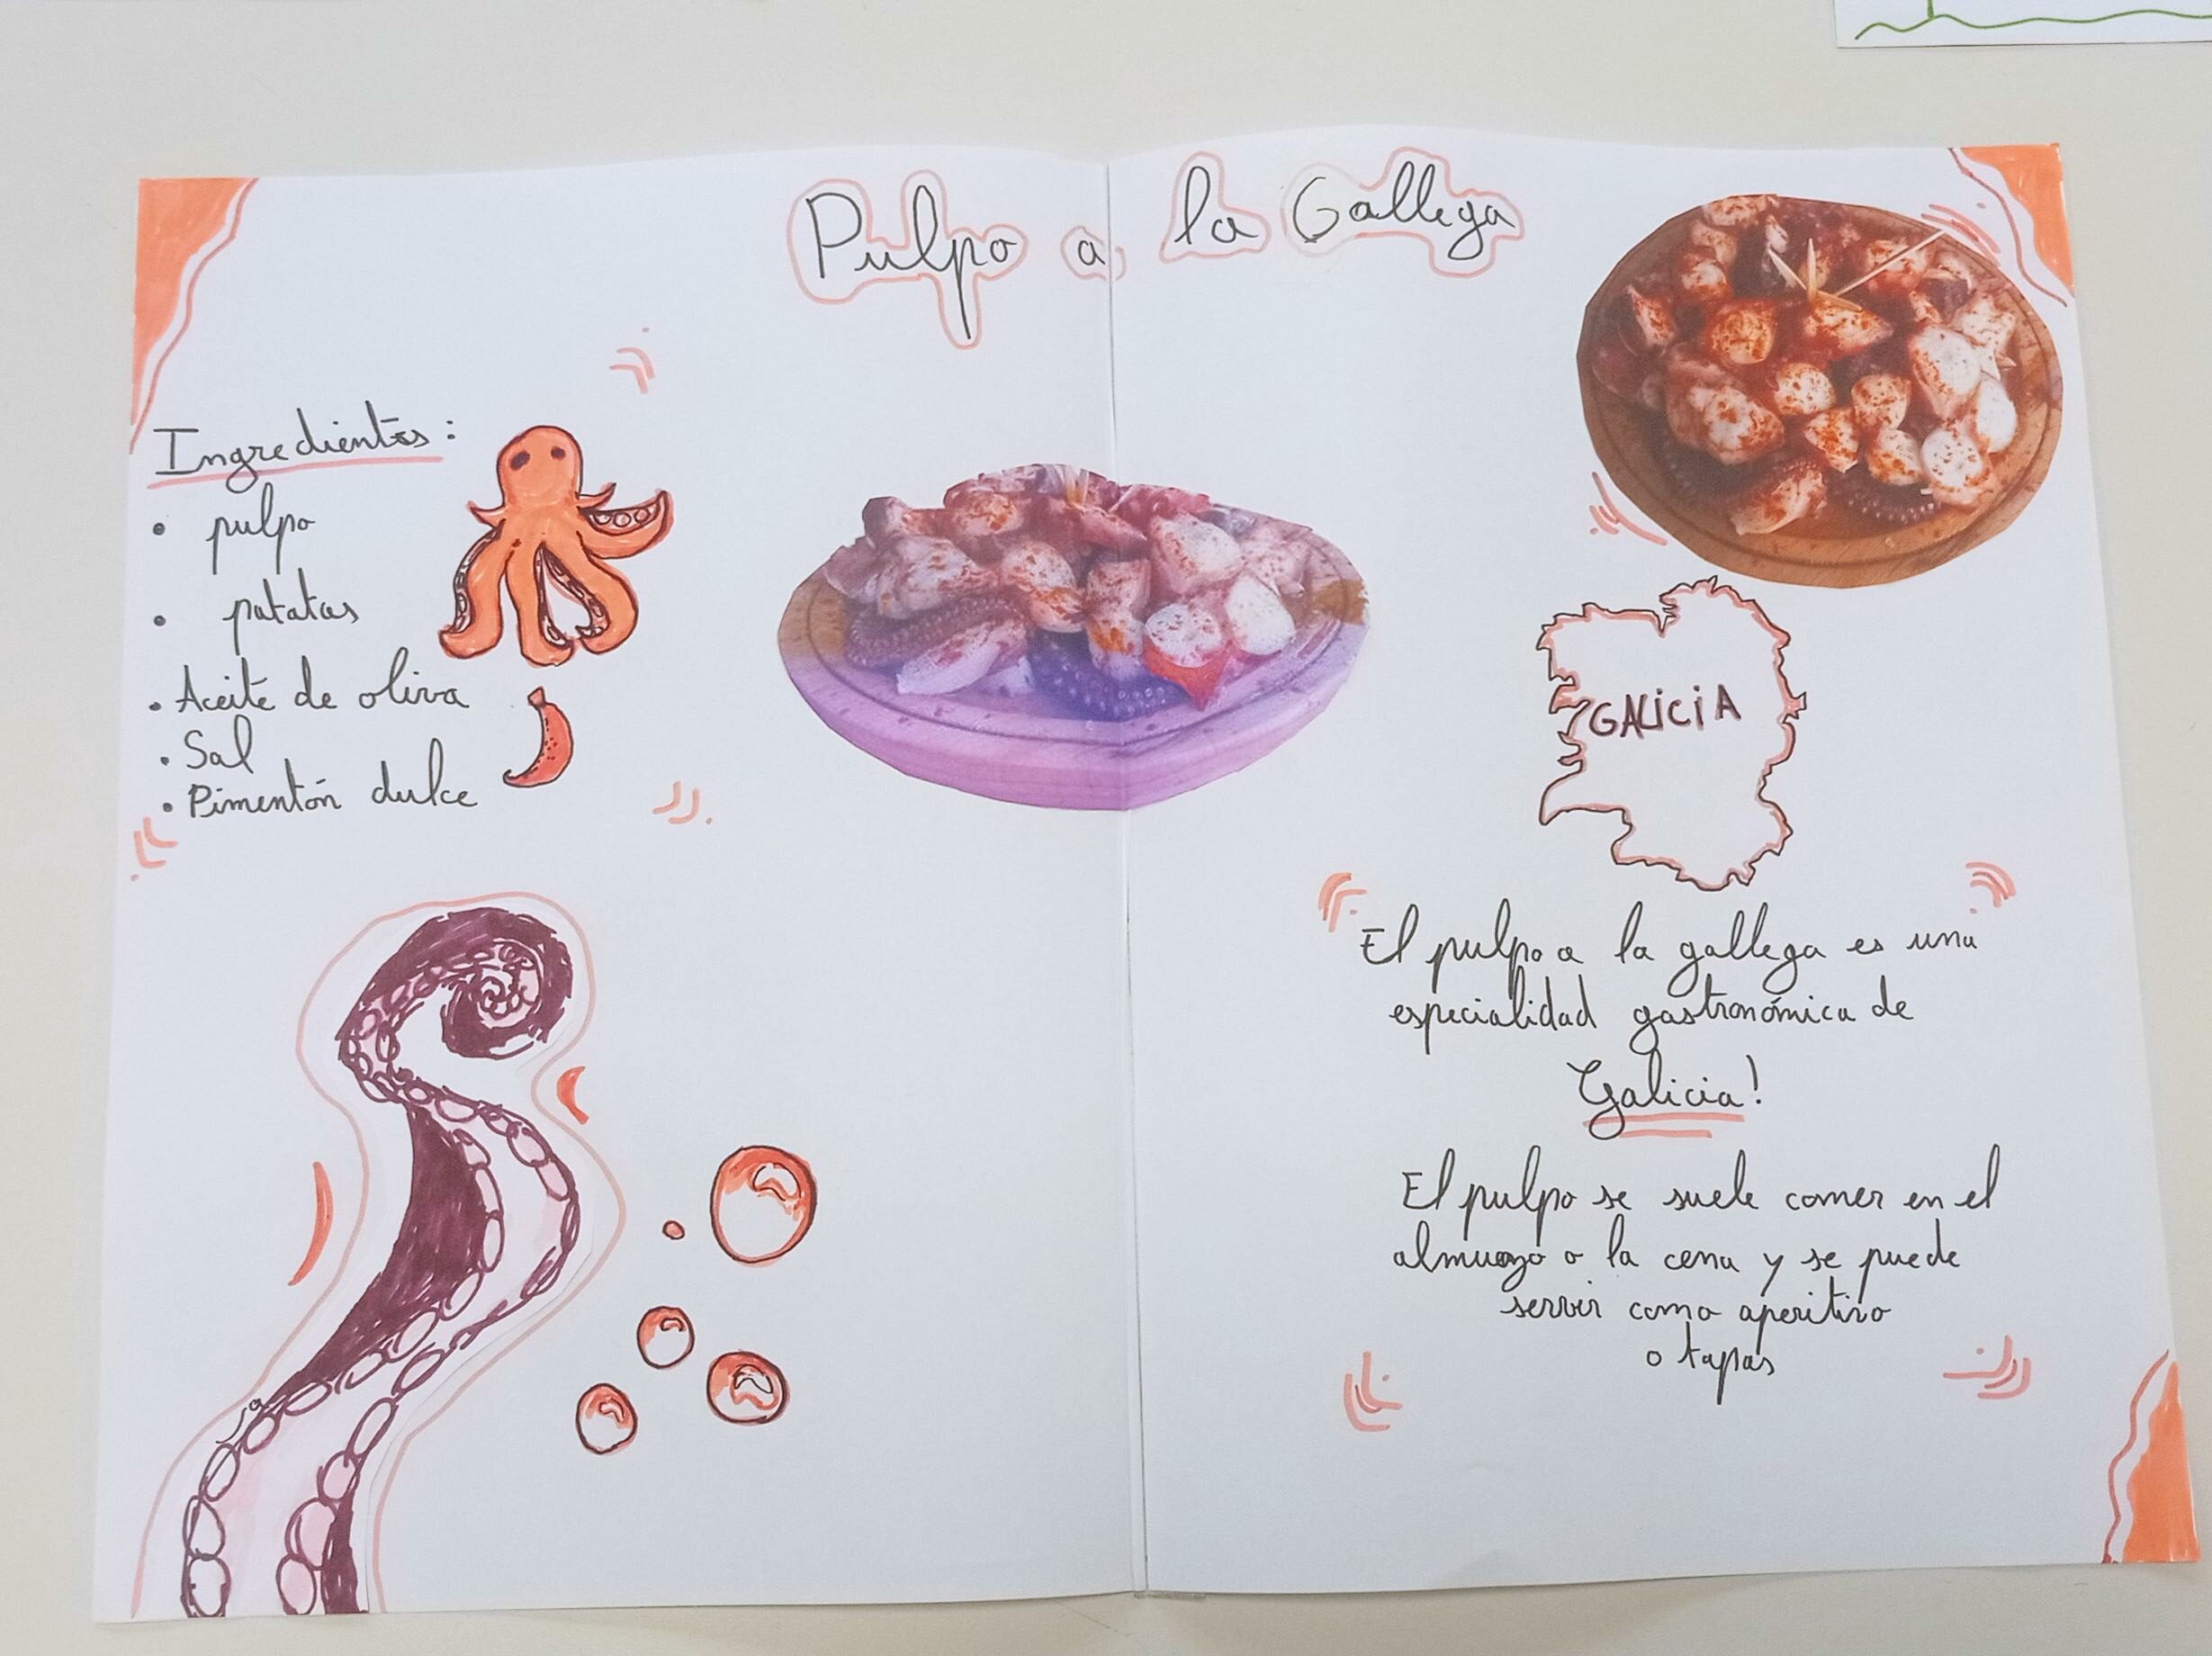 Pulpo a la Gallega
Ingredientes:
• pulpo
• patatas
• Aceite de oliva
• Sal
• Pimentón dulce
GALiCiA
El pulpo a la gallega es una
especialidad gastronómica de
Galicia!
El pulpo se suele comer en el
almuezo o la cena y se puede
servir como aperitivo
o tapas